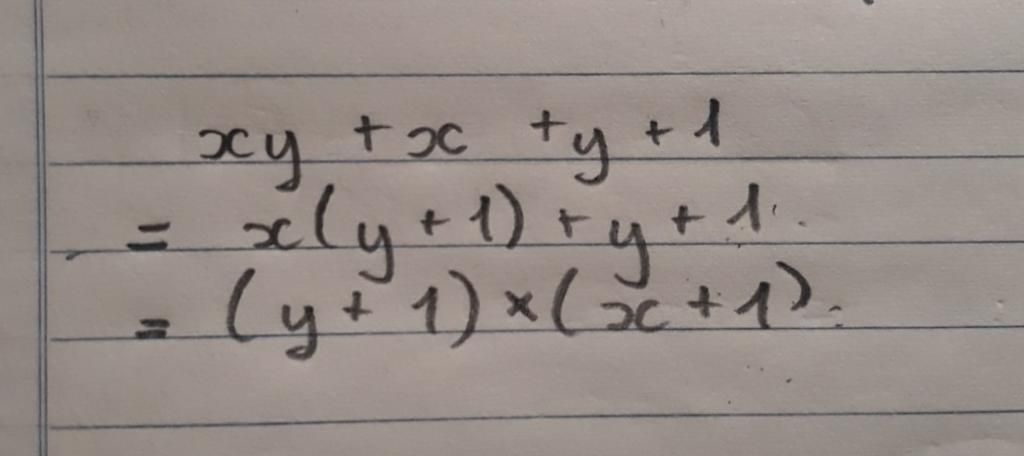 xy + x + y + 1
= x(y + 1) + y + 1.
= (y + 1) × (x + 1).